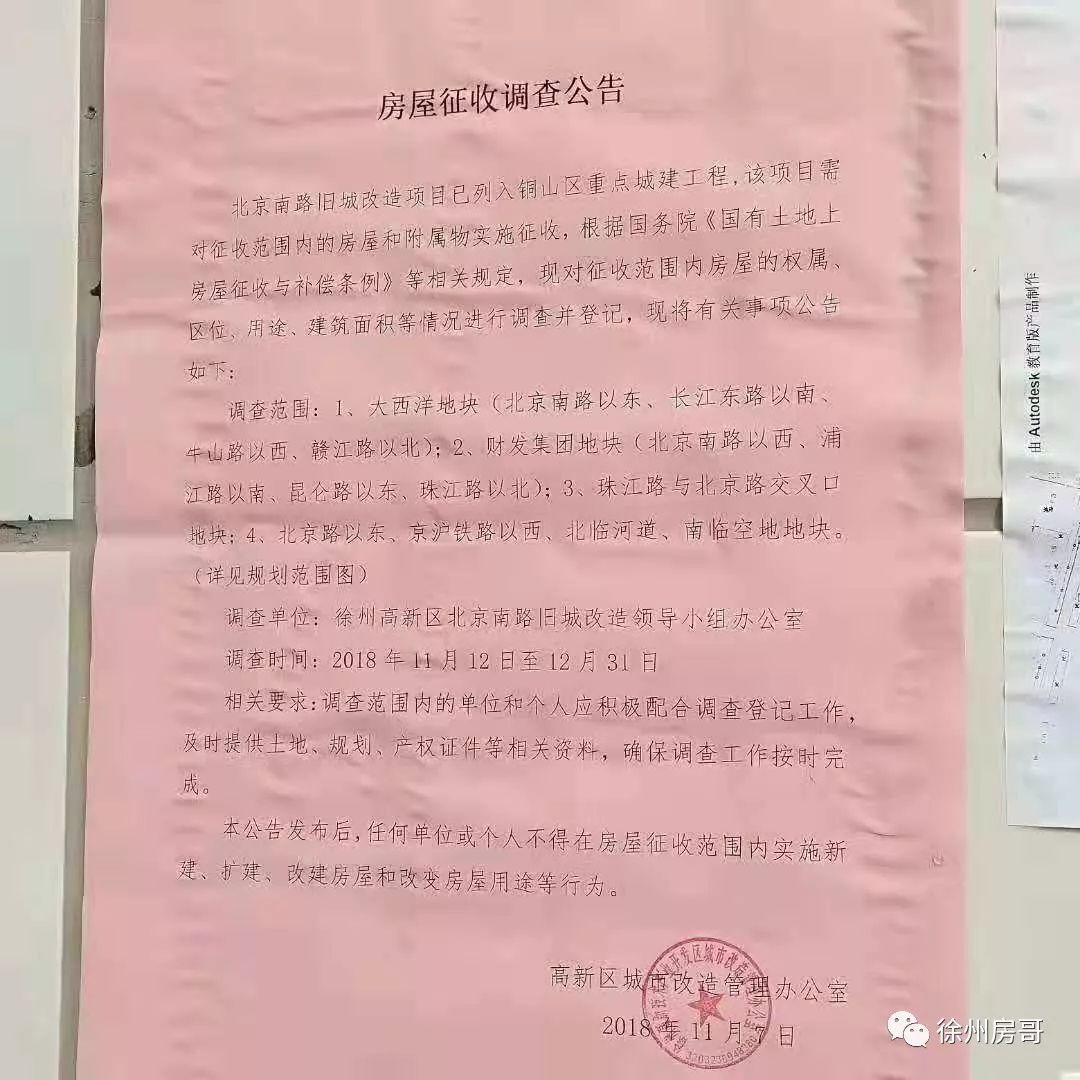 房屋征收调查公告
北京南路旧城改造项目已列入铜山区重点城建工程,该项目需
对征收范围内的房屋和附属物实施征收,根据国务院《国有土地上
房屋征收与补偿条例》等相关规定,现对征收范围内房屋的权属、
区位、用途、建筑面积等情况进行调查并登记,现将有关事项公告
如下:
调查范围:1、大西洋地块(北京南路以东、长江东路以南、
牛山路以西、赣江路以北);2、财发集团地块(北京南路以西、浦
江路以南、昆仑路以东、珠江路以北);3、珠江路与北京路交叉口
地块;4、北京路以东、京沪铁路以西、北临河道、南临空地地块。
(详见规划范围图)
调查单位:徐州高新区北京南路旧城改造领导小组办公室
调查时间:2018年11月12日至12月31日
相关要求:调查范围内的单位和个人应积极配合调查登记工作,
及时提供土地、规划、产权证件等相关资料,确保调查工作按时完
成。
本公告发布后,任何单位或个人不得在房屋征收范围内实施新
建、扩建、改建房屋和改变房屋用途等行为。
高新区城市改造管理办公室
2018年11月7日
由 Autodesk 教育版产品制作
徐州房哥